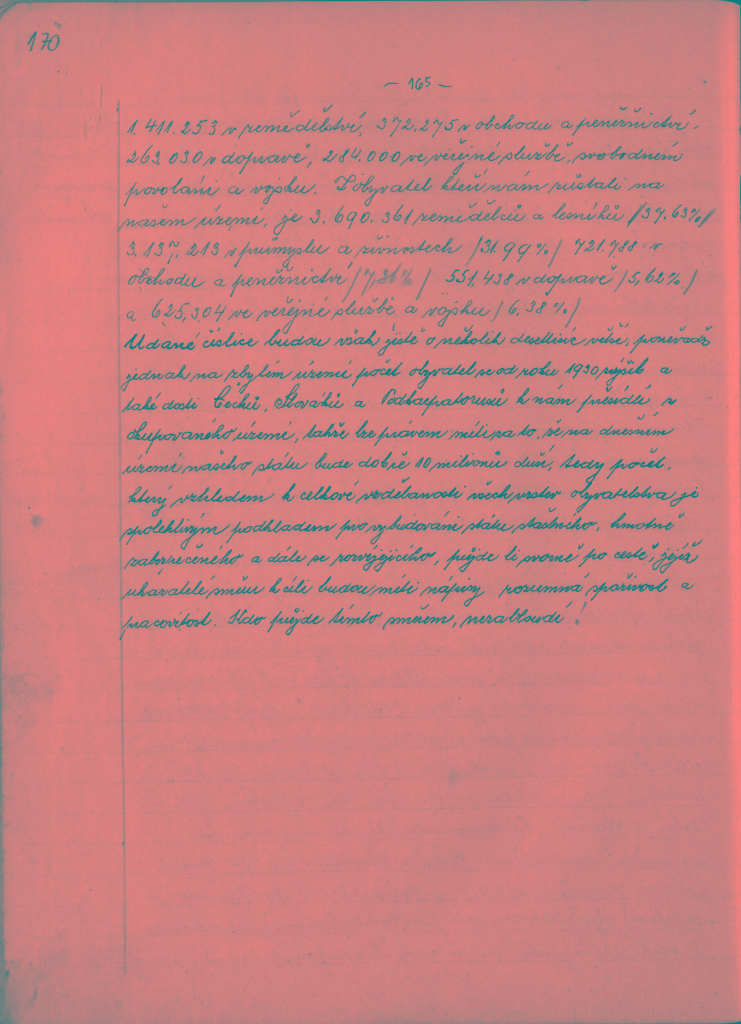 170
- 165 -
1,411.253 v zemědělství, 372.275 v obchodu a peněžnictví,
263.030 v dopravě, 284.000 ve veřejné službě, svobodném
povolání a vojsku. Z obyvatel kteří nám zůstali na
našem území, je 3.690.361 zemědělců a lesníků /37.63%/
3.137,213 v průmyslu a živnostech /31.99%/ 721.788 v
obchodu a peněžnictví /7,36%/ 551.438 v dopravě /5,62%/
a 625,304 ve veřejné službě a vojsku /6,38%/
Udané číslice budou však jistě o několik desetitisíc větší, poněvadž
jednak na zbylém území počet obyvatel se od roku 1930 zvýšil a
také dosti Čechů, Slováků a Podkarpatorusů k nám přesídlí z
okupovaného území, takže lze právem míti za to, že na dnešním
území našeho státu bude dobře 10 milionů duší, tedy počet,
který vzhledem k celkové vzdělanosti všech vrstev obyvatelstva je
spolehlivým podkladem pro vybudování státu šťastného, hmotně
zabezpečeného a dále se rozvíjejícího, půjde li svorně po cestě, jejíž
ukazatelé směru k cíli budou míti nápisy rozumná spořivost a
pracovitost. Kdo půjde tímto směrem, nezabloudí!